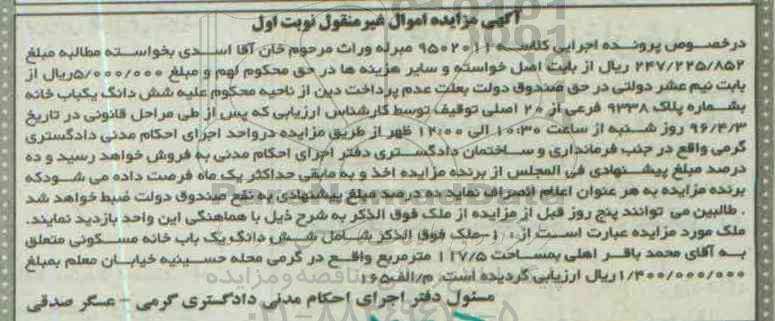 آگهی مزایده اموال غیر منقول نوبت اول
درخصوص پرونده اجرایی کلاسه 9502011 مبرله وراث مرحوم خان آقا اسدی بخواسته مطالبه مبلغ
247/225/852 ریال از بابت اصل خواسته و سایر هزینه ها در حق محکوم لهم و مبلغ 5/000/000ریال از
بابت نیم عشر دولتی در حق صندوق دولت بعلت عدم پرداخت دین از ناحیه محکوم علیه شش دانگ یکباب خانه
بشماره پلاک 9338 فرعی از 20 اصلی توقیف توسط کارشناس ارزیابی که پس از طی مراحل قانونی در تاریخ
96/4/3 روز شنبه از ساعت 10:30 الی 12:00 ظهر از طریق مزایده درواحد اجرای احکام مدنی دادگستری
گرمی واقع در جنب فرمانداری و ساختمان دادگستری دفتر اجرای احکام مدنی به فروش خواهد رسید و ده
درصد مبلغ پیشنهادی فی المجلس از برنده مزایده اخذ و به مابقی حداکثر یک ماه فرصت داده می شودکه
برنده مزایده به هر عنوان اعلام انصراف نماید ده درصد مبلغ پیشنهادی به نفع صندوق دولت ضبط خواهد شد
. طالبین می توانند پنج روز قبل از مزایده از ملک فوق الذکر به شرح ذیل با هماهنگی این واحد بازدید نمایند.
ملک مورد مزایده عبارت است از : 1-ملک فوق الذکر شامل شش دانگ یک باب خانه مسکونی متعلق
به آقای محمد باقر اهلی بمساحت 117/5 مترمربع واقع در گرمی محله حسینیه خیابان معلم بمبلغ
1/400/000/000ریال ارزیابی گردیده است. م/الف165
مسئول دفتر اجرای احکام مدنی دادگستری گرمی - عسگر صدقی